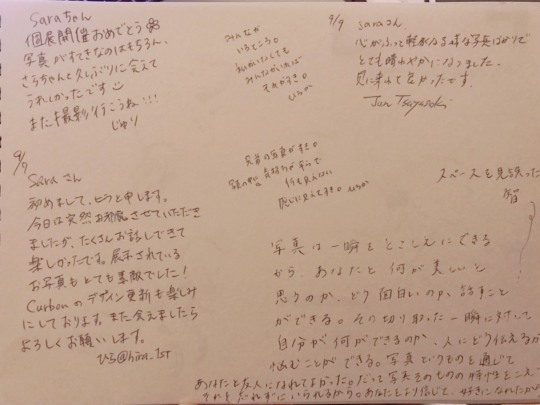 Saraちゃん
個展開催おめでとう
写真がすてきなのはもちろん、
さらちゃんと久しぶりに会えて
うれしかったです
また撮影行こうね!!!
じゅり
みんなが
いるところ。
みんながいれば
それがすき。
9/9
saraさん
心がふっと軽くなる様な写真ばかりで
とても晴れやかになりました。
見に来れて良かったです。
9/9
Saraさん
初めまして、ヒラと申します。
今日は突然お邪魔させていただき
ましたが、たくさんお話しできて
楽しかったです。展示されている
お写真もとても素敵でした!
Curbonのデザイン更新も楽しみ
にしております。また会えましたら
よろしくお願いします。
兄弟の写真がすき。
スペースを見誤った
写真は一瞬をとこしえにできる
から、あなたと何が美しいと
思うのか、どう面白いのか、話すこと
ができる。その切り取った一瞬に対して
自分が何ができるのか、人にどう伝えるか
悩むことができる。写真というものを通じて
あなたと友人になれてよかった。だって写真そのものの特性をこえて